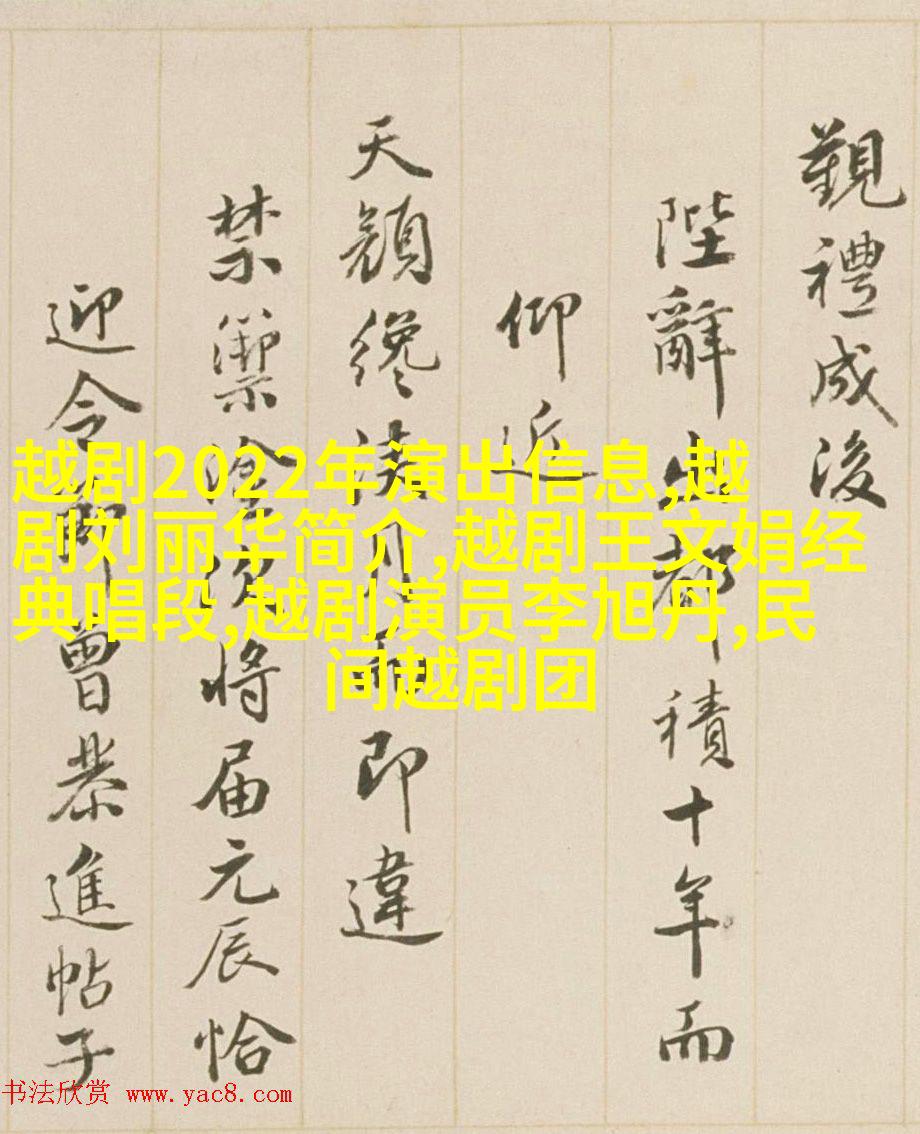 覲禮成後
陛辭出都積十年而
仰近
天顔纔浹月而即違
禁籞將届元辰恰
迎令節曾恭進帖子
越剧2022年演出信息,越
剧刘丽华简介,越剧王文娟经
典唱段,越剧演员李旭丹,民
间越剧团
书法欣赏 www.yac8.com